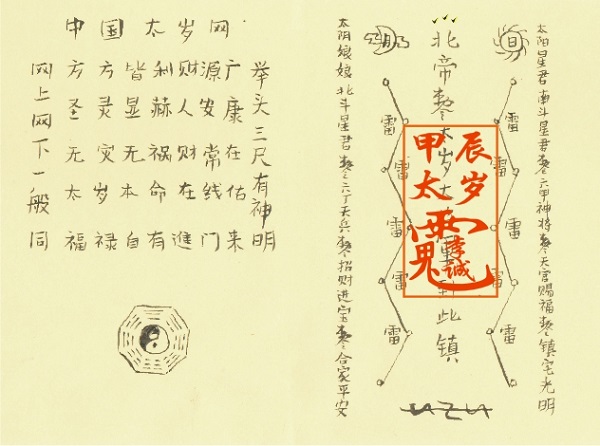 中国太岁网
举头三尺有神明
方方皆利财源广
圣灵显赫人安康
无灾无祸财常在
太岁本命在线估
福禄自有進门来
网上网下一般同
太阳星君南斗星君敕六甲神将敕天官赐福敕镇宅光明
日
雷
雷
雷
雷
雷
北帝敕太岁到此镇
甲辰
太岁
李诚
雷
雷
雷
雷
雷
月
太阴娘娘北斗星君敕六丁天兵敕招财进宝敕合家平安